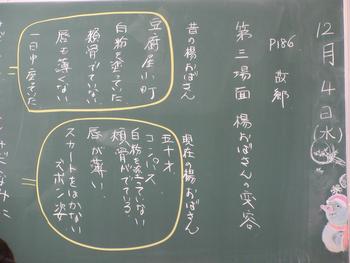 12月4日(水)
P186 故郷
第三場面 楊おばさんの変容
昔の楊おばさん
豆腐屋小町
白粉を塗っていた
頬骨でていない
唇も薄くない
一日中座ってた
現在の楊おばさん
五十才
コンパス
白粉を塗っていない
頬骨がでている
唇が薄い
スカートをはかない
ズボン姿